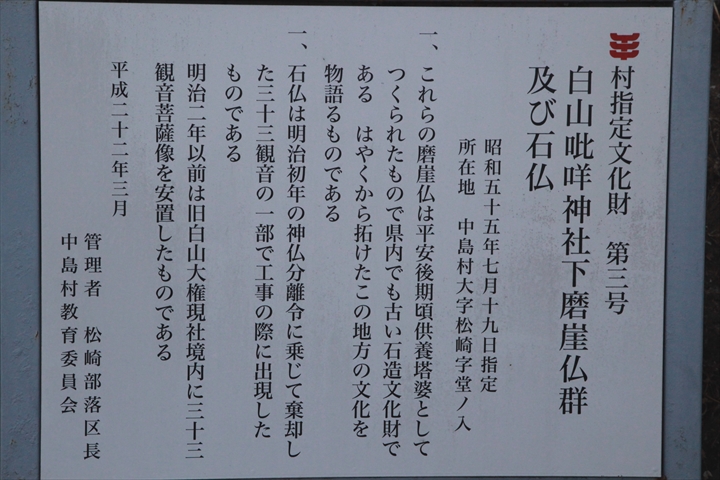 村指定文化財　第三号
白山吡咩神社下磨崖仏群
及び石仏
昭和五十五年七月十九日指定
所在地　中島村大字松崎字堂ノ入
一、これらの磨崖仏は平安後期頃供養塔婆として
つくられたもので県内でも古い石造文化財で
ある　はやくから拓けたこの地方の文化を
物語るものである
一、石仏は明治初年の神仏分離令に乗じて棄却し
た三十三観音の一部で工事の際に出現した
ものである
明治二年以前は旧白山大権現社境内に三十三
観音菩薩像を安置したものである
平成二十二年三月
管理者　松崎部落区長
中島村教育委員会